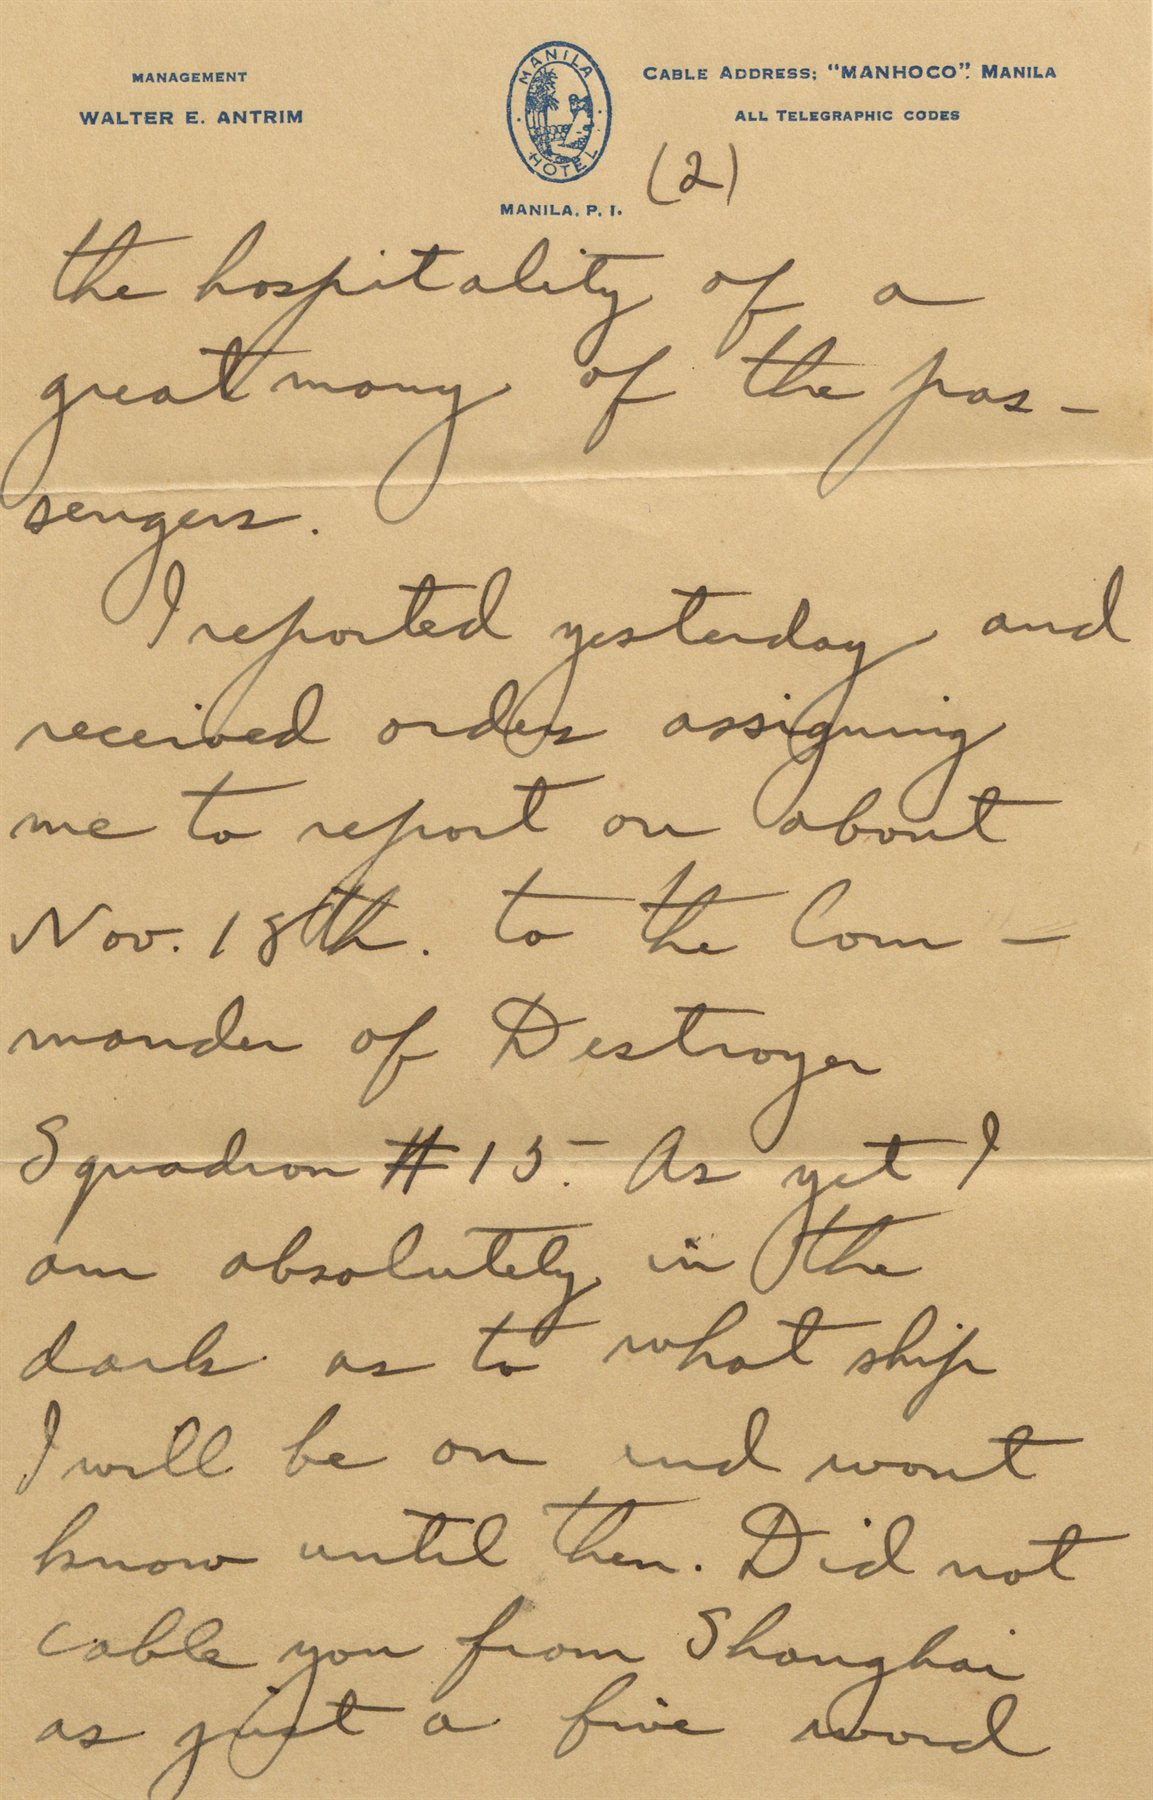 MANAGEMENT
WALTER E. ANTRIM
MANILA
HOTEL
MANILA, P. I.
CABLE ADDRESS; "MANHOCO". MANILA
ALL TELEGRAPHIC CODES
(2)
the hospitality of a
great many of the pas-
sengers.
I reported yesterday and
received orders assigning
me to report on about
Nov. 18th. to the Com-
mander of Destroyer
Squadron #15. As yet I
am absolutely in the
dark as to what ship
I will be on and wont
know until then. Did not
cable you from Shanghai
as just a five word